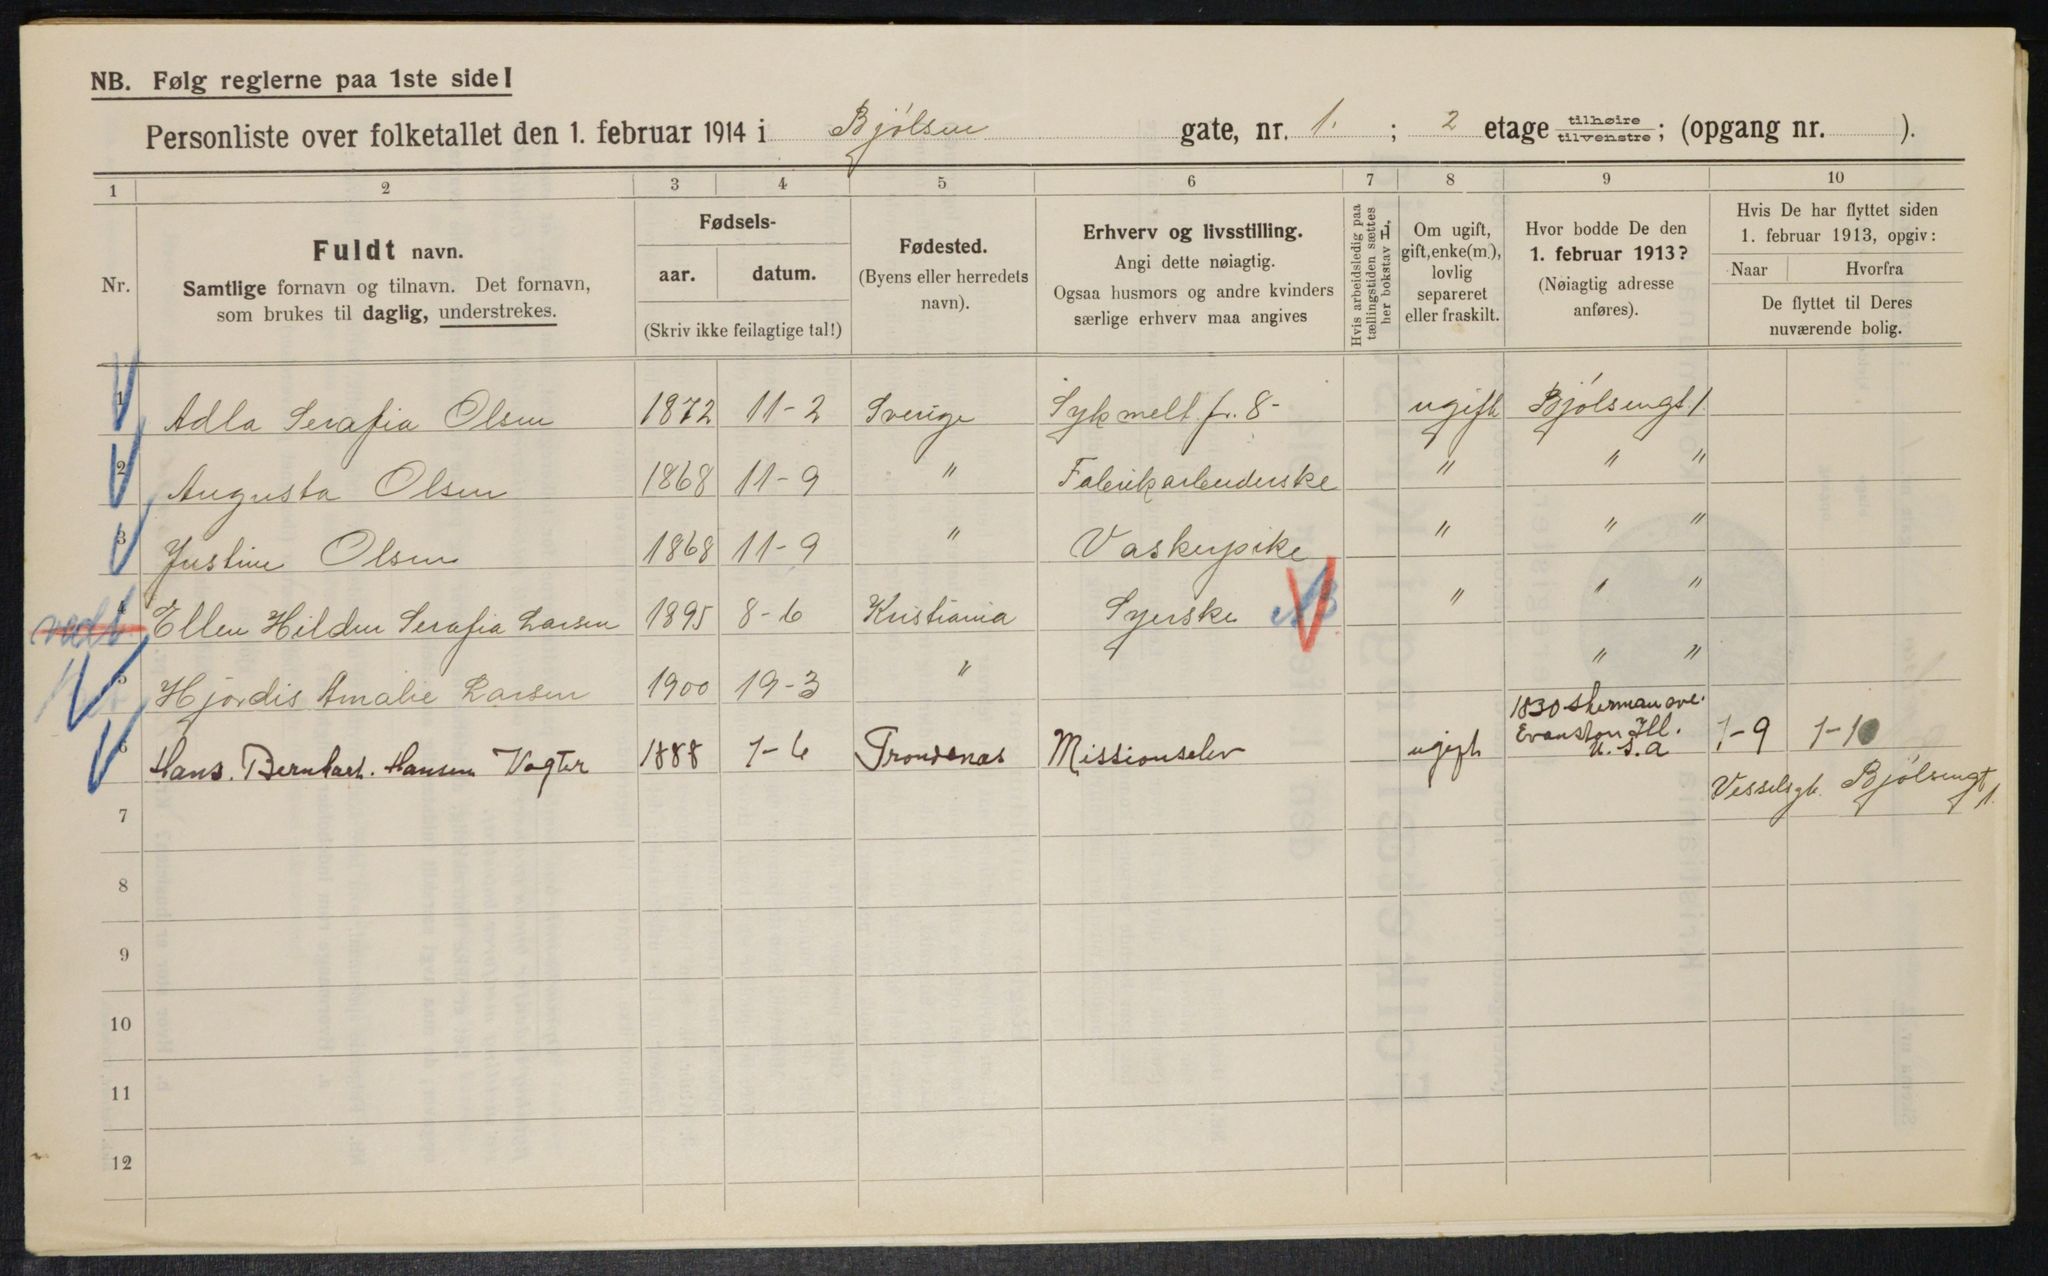 NB. Følg reglerne paa 1ste side!
Personliste over folketallet den 1. februar 1914 i Bjølsen gate, nr. 1. ; 2 etage tilhøire tilvenstre; (opgang nr. ).
1 2 3 4 5 6 7 8 9 10
Nr.
Fuldt navn.
Samtlige fornavn og tilnavn. Det fornavn,
som brukes til daglig, understrekes.
Fødsels-
aar. datum.
(Skriv ikke feilagtige tal!)
Fødested.
(Byens eller herredets
navn).
Erhverv og livsstilling.
Angi dette nøiagtig.
Ogsaa husmors og andre kvinders
særlige erhverv maa angives
Hvis arbeidsledig paa
tællingstiden sættes
her bokstav L.
Om ugift,
gift, enke(m.),
lovlig
separeret
eller fraskilt.
Hvor bodde De den
1. februar 1913?
(Nøiagtig adresse
anføres).
Hvis De har flyttet siden
1. februar 1913, opgiv:
Naar Hvorfra
De flyttet til Deres
nuværende bolig.
1 Adla Serafia Olsen 1872 11-2 Sverige Sykmelt fr. 8- ugift Bjølsengt 1.
2 Augusta Olsen 1868 11-9 " Fabrikarbeiderske " " "
3 Justine Olsen 1868 11-9 " Vaskerpike " " "
4 Ellen Hildur Serafia Larsen 1895 8-6 Kristiania Syerske " " "
5 Hjørdis Amalie Larsen 1900 19-3 " " "
6 Hans. Bernhart. Hansen Vogter 1888 7-6 Trondenas Missionselev ugift 1830 Sherman ave.
Evanston Ill.
U.S.A 1-9 1-10
Vesselsgt. Bjølsengt 1.
7
8
9
10
11
12